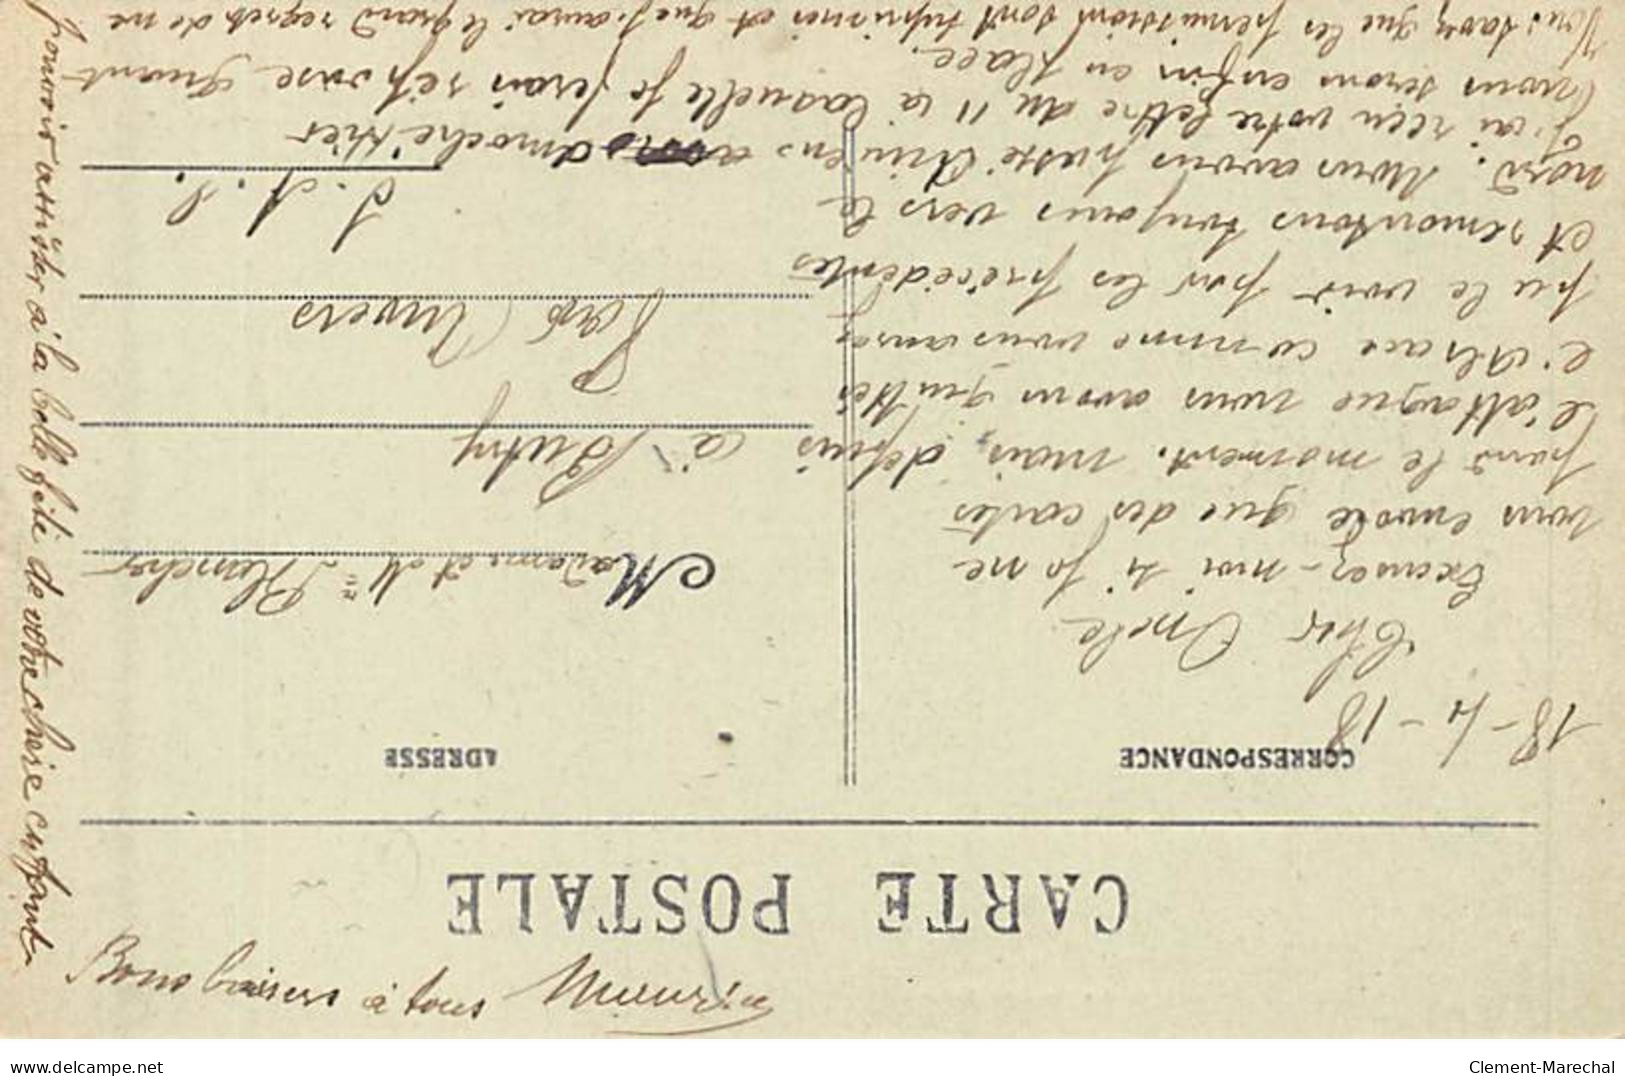 CARTE POSTALE
CORRESPONDANCE
ADRESSE
18-4-18
Cher Oncle
Excusez-moi si je ne
vous envoie que des cartes
pour le moment. mais, depuis
l'attaque nous avons quittés
l'Alsace comme vous avez
pu le voir par les précédentes
et remontons toujours vers le
nord. Nous avons passé Amiens
J'ai reçu votre lettre du 11 à laquelle je ferais réponse quant
nous serons enfin en place.
Vous savez que les permissions sont suprimes et que j'aurai le grand regret de ne
pouvoir assister à la belle fête de votre chère enfant
Bons baisers à tous Maurice
Madame et Mr Blancher
à Butry
Par Auvers
S. & O.